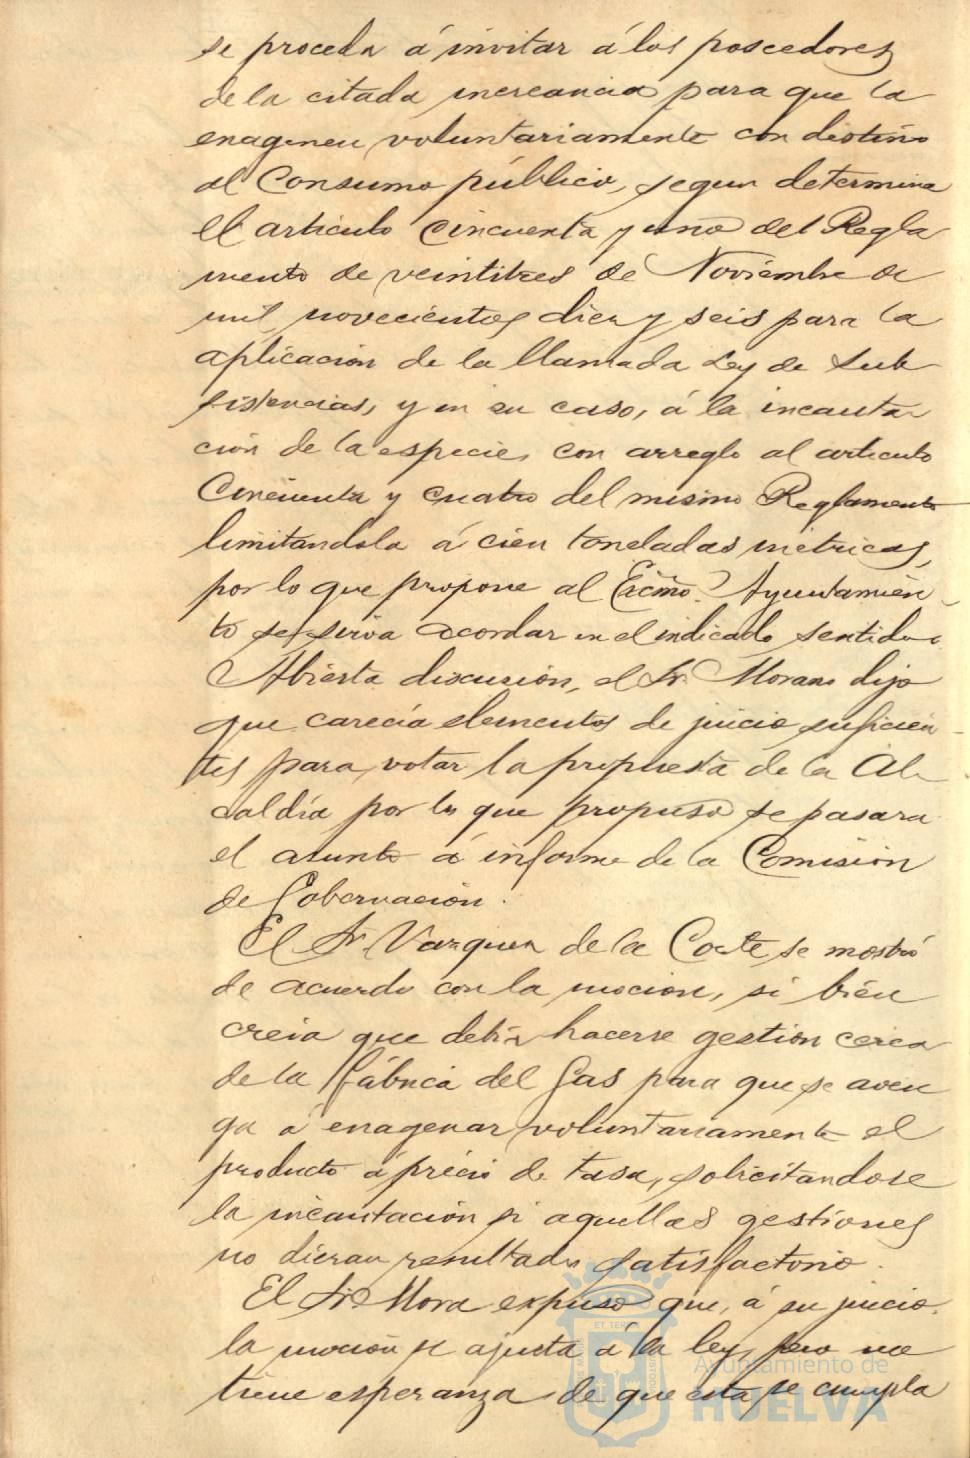 se proceda á invitar á los poseedores
de la citada mercancia para que la
enagenen voluntariamente con destino
al Consumo público, segun determina
el articulo cincuenta y uno del Regla
mento de veintitres de Noviembre de
mil novecientos diez y seis para la
aplicación de la llamada Ley de Sub
sistencias, y en su caso, á la incauta
ción de la especie, con arreglo al articulo
Cincuenta y cuatro del mismo Reglamento
limitandola á cien toneladas métricas,
por lo que propone al Excmo. Ayuntamien-
to se sirva acordar en el indicado sentido.
Abierta discusión, el Sr. Morano dijo
que carecía elementos de juicio suficien-
tes para votar la propuesta de la Al-
caldía por lo que propuso se pasara
el asunto á informe de la Comisión
de Gobernación.
El Sr. Vazquez de la Corte, se mostró
de acuerdo con la mocion, si bien
creia que debia hacerse gestion cerca
de la fábrica del Gas para que se aven
ga á enagenar voluntariamente el
producto á precio de tasa, solicitandose
la incautación si aquellas gestiones
no dieran resultado satisfactorio.
El Sr. Mora expuso que, á su juicio,
la moción se ajusta á la ley, pero no
tiene esperanza de que esta se cumpla
Ayuntamiento de
HUELVA